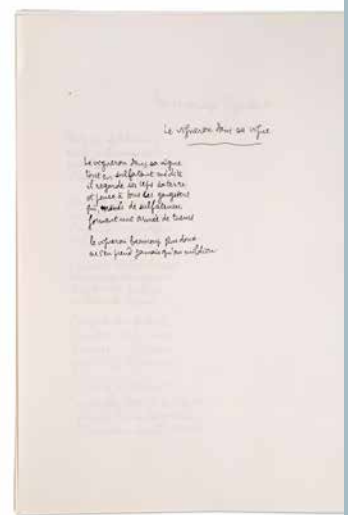 Le vigneron dans sa vigne
Le vigneron dans sa vigne
tout en sulfatant médite
il regarde ses ceps
et pense à tous les gangsters
qui de sulfateuses
forment une armée de tueurs
le vigneron beaucoup plus doux
ne s'en prend jamais qu'au mildiou